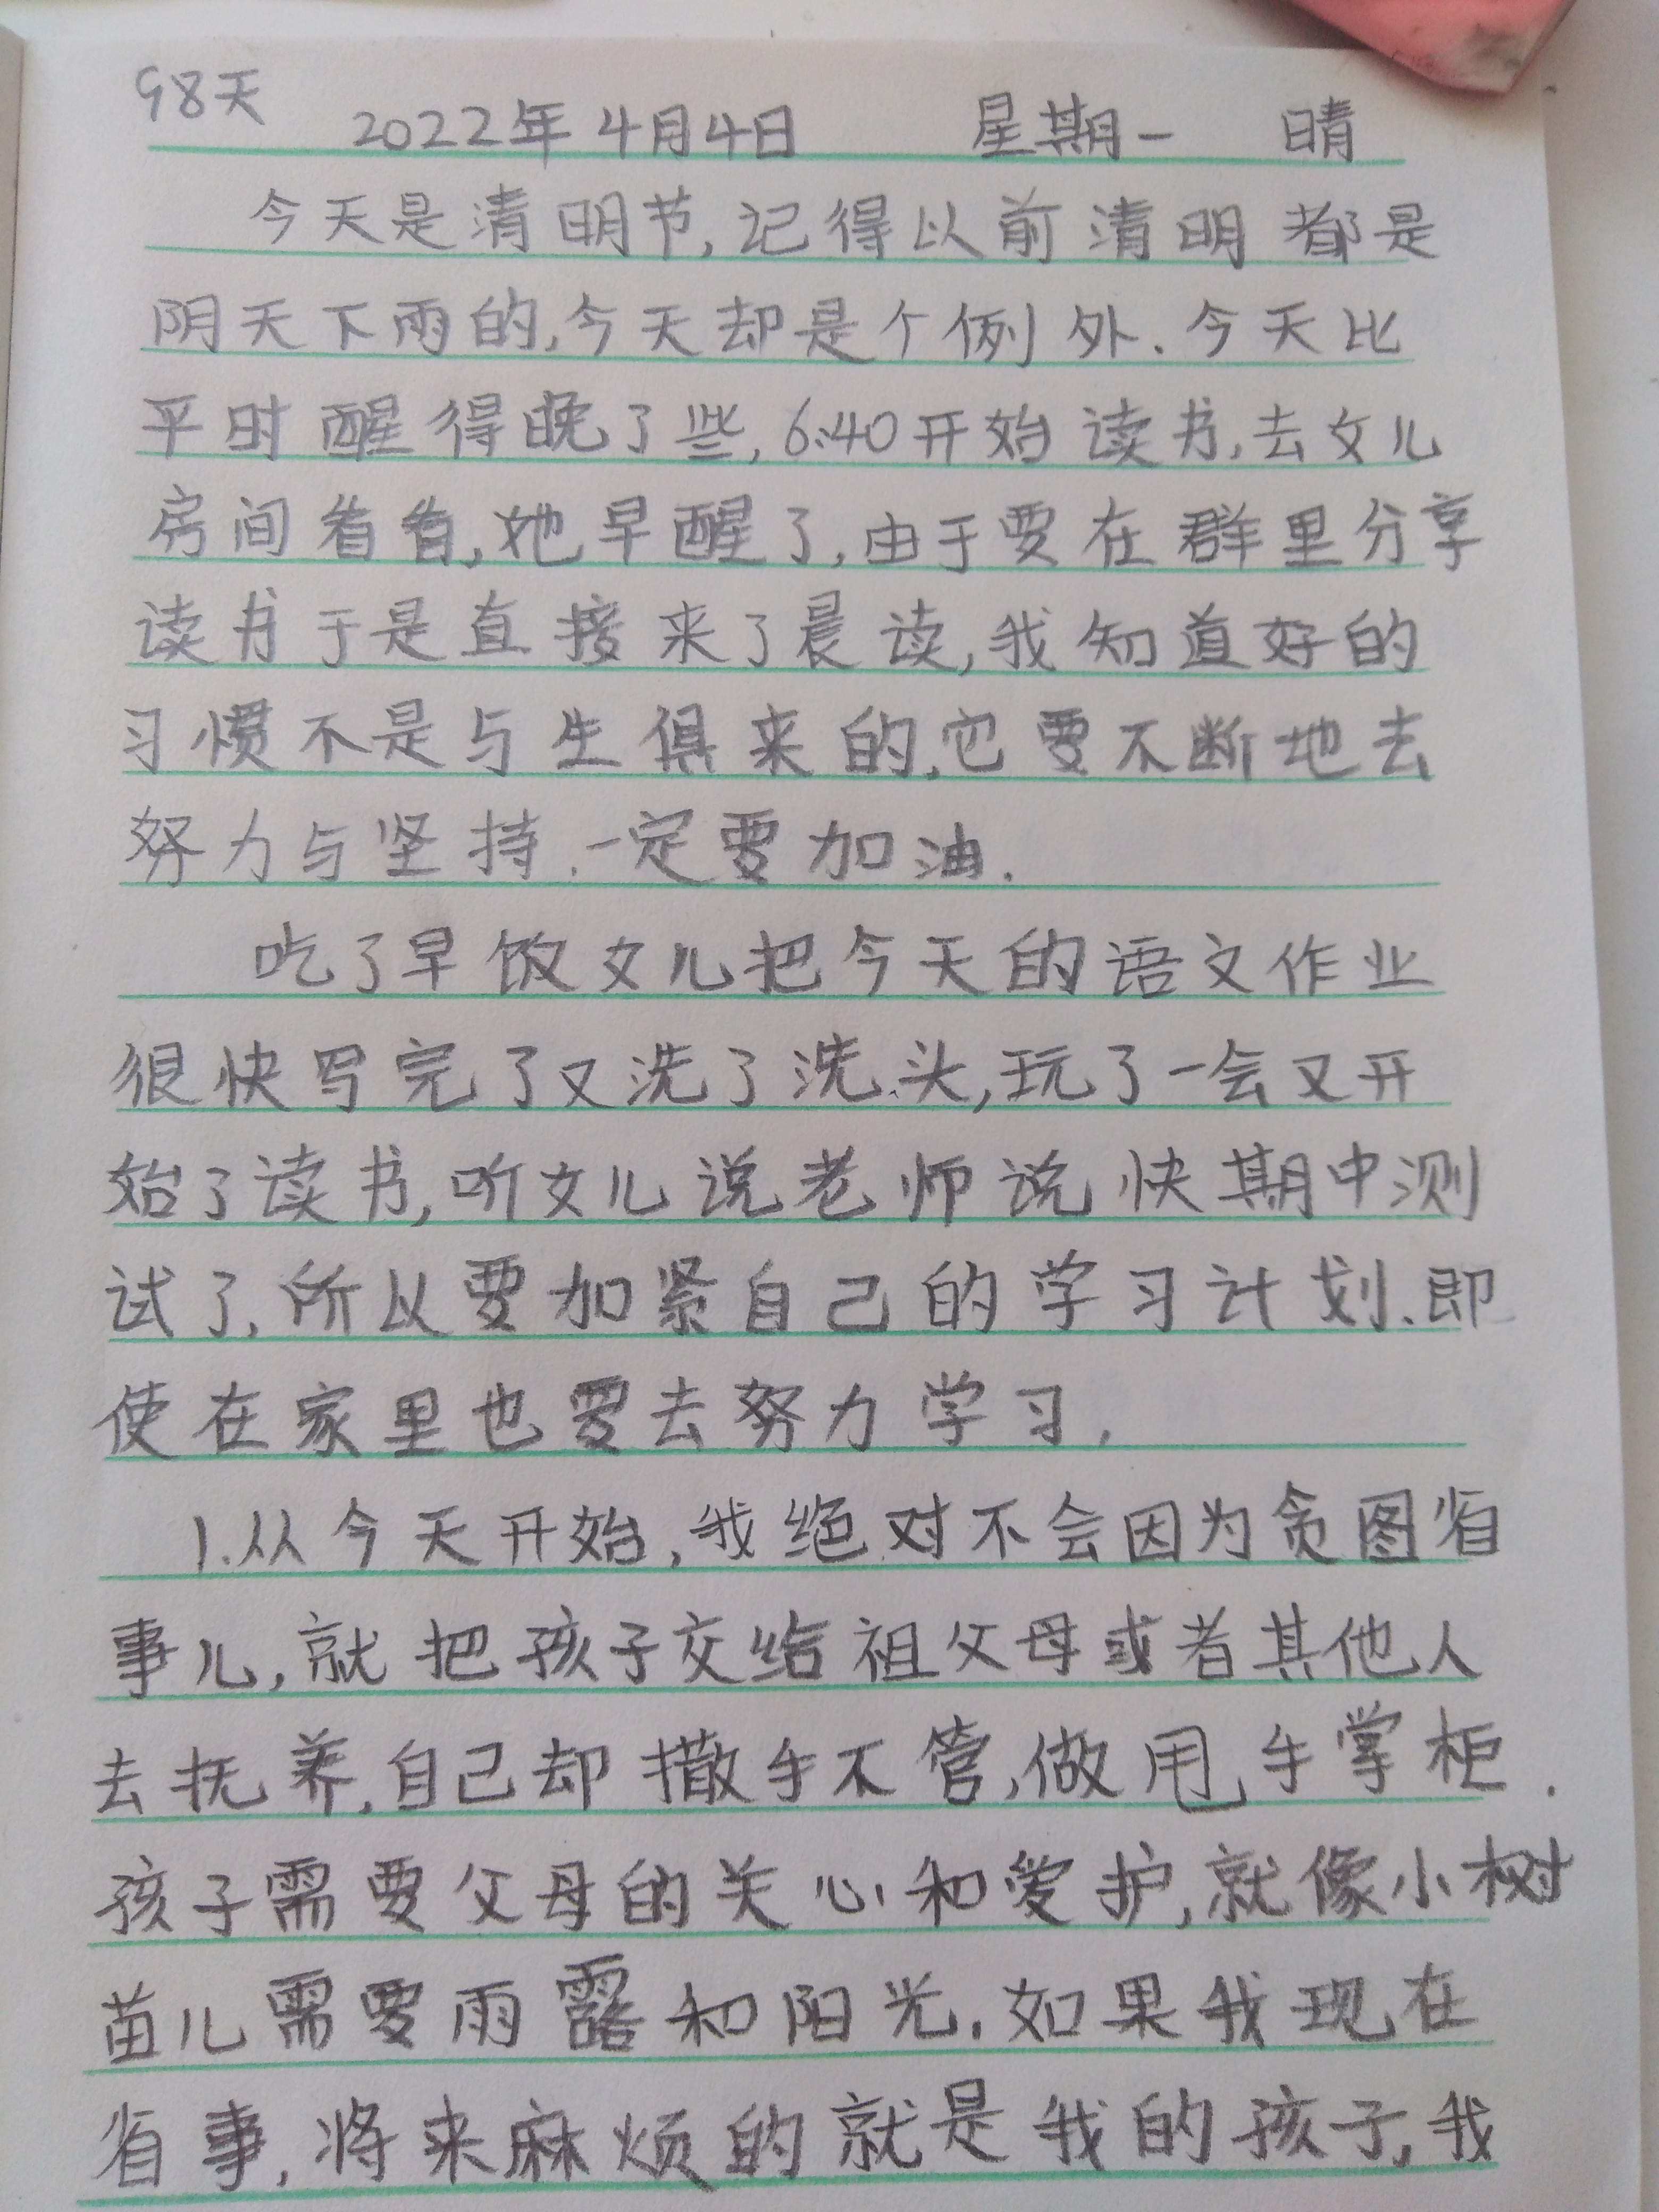 98天
2022年4月4日 星期一 晴
今天是清明节,记得以前清明都是
阴天下雨的,今天却是个例外.今天比
平时醒得晚了些,6:40开始读书,去女儿
房间看看,她早醒了,由于要在群里分享
读书于是直接来了晨读,我知道好的
习惯不是与生俱来的,它要不断地去
努力与坚持.一定要加油.
吃了早饭女儿把今天的语文作业
很快写完了又洗了洗头,玩了一会又开
始了读书,听女儿说老师说快期中测
试了,所以要加紧自己的学习计划.即
使在家里也要去努力学习.
1.从今天开始,我绝对不会因为贪图省
事儿,就把孩子交给祖父母或者其他人
去抚养,自己却撒手不管,做甩手掌柜.
孩子需要父母的关心和爱护,就像小树
苗儿需要雨露和阳光.如果我现在
省事,将来麻烦的就是我的孩子,我